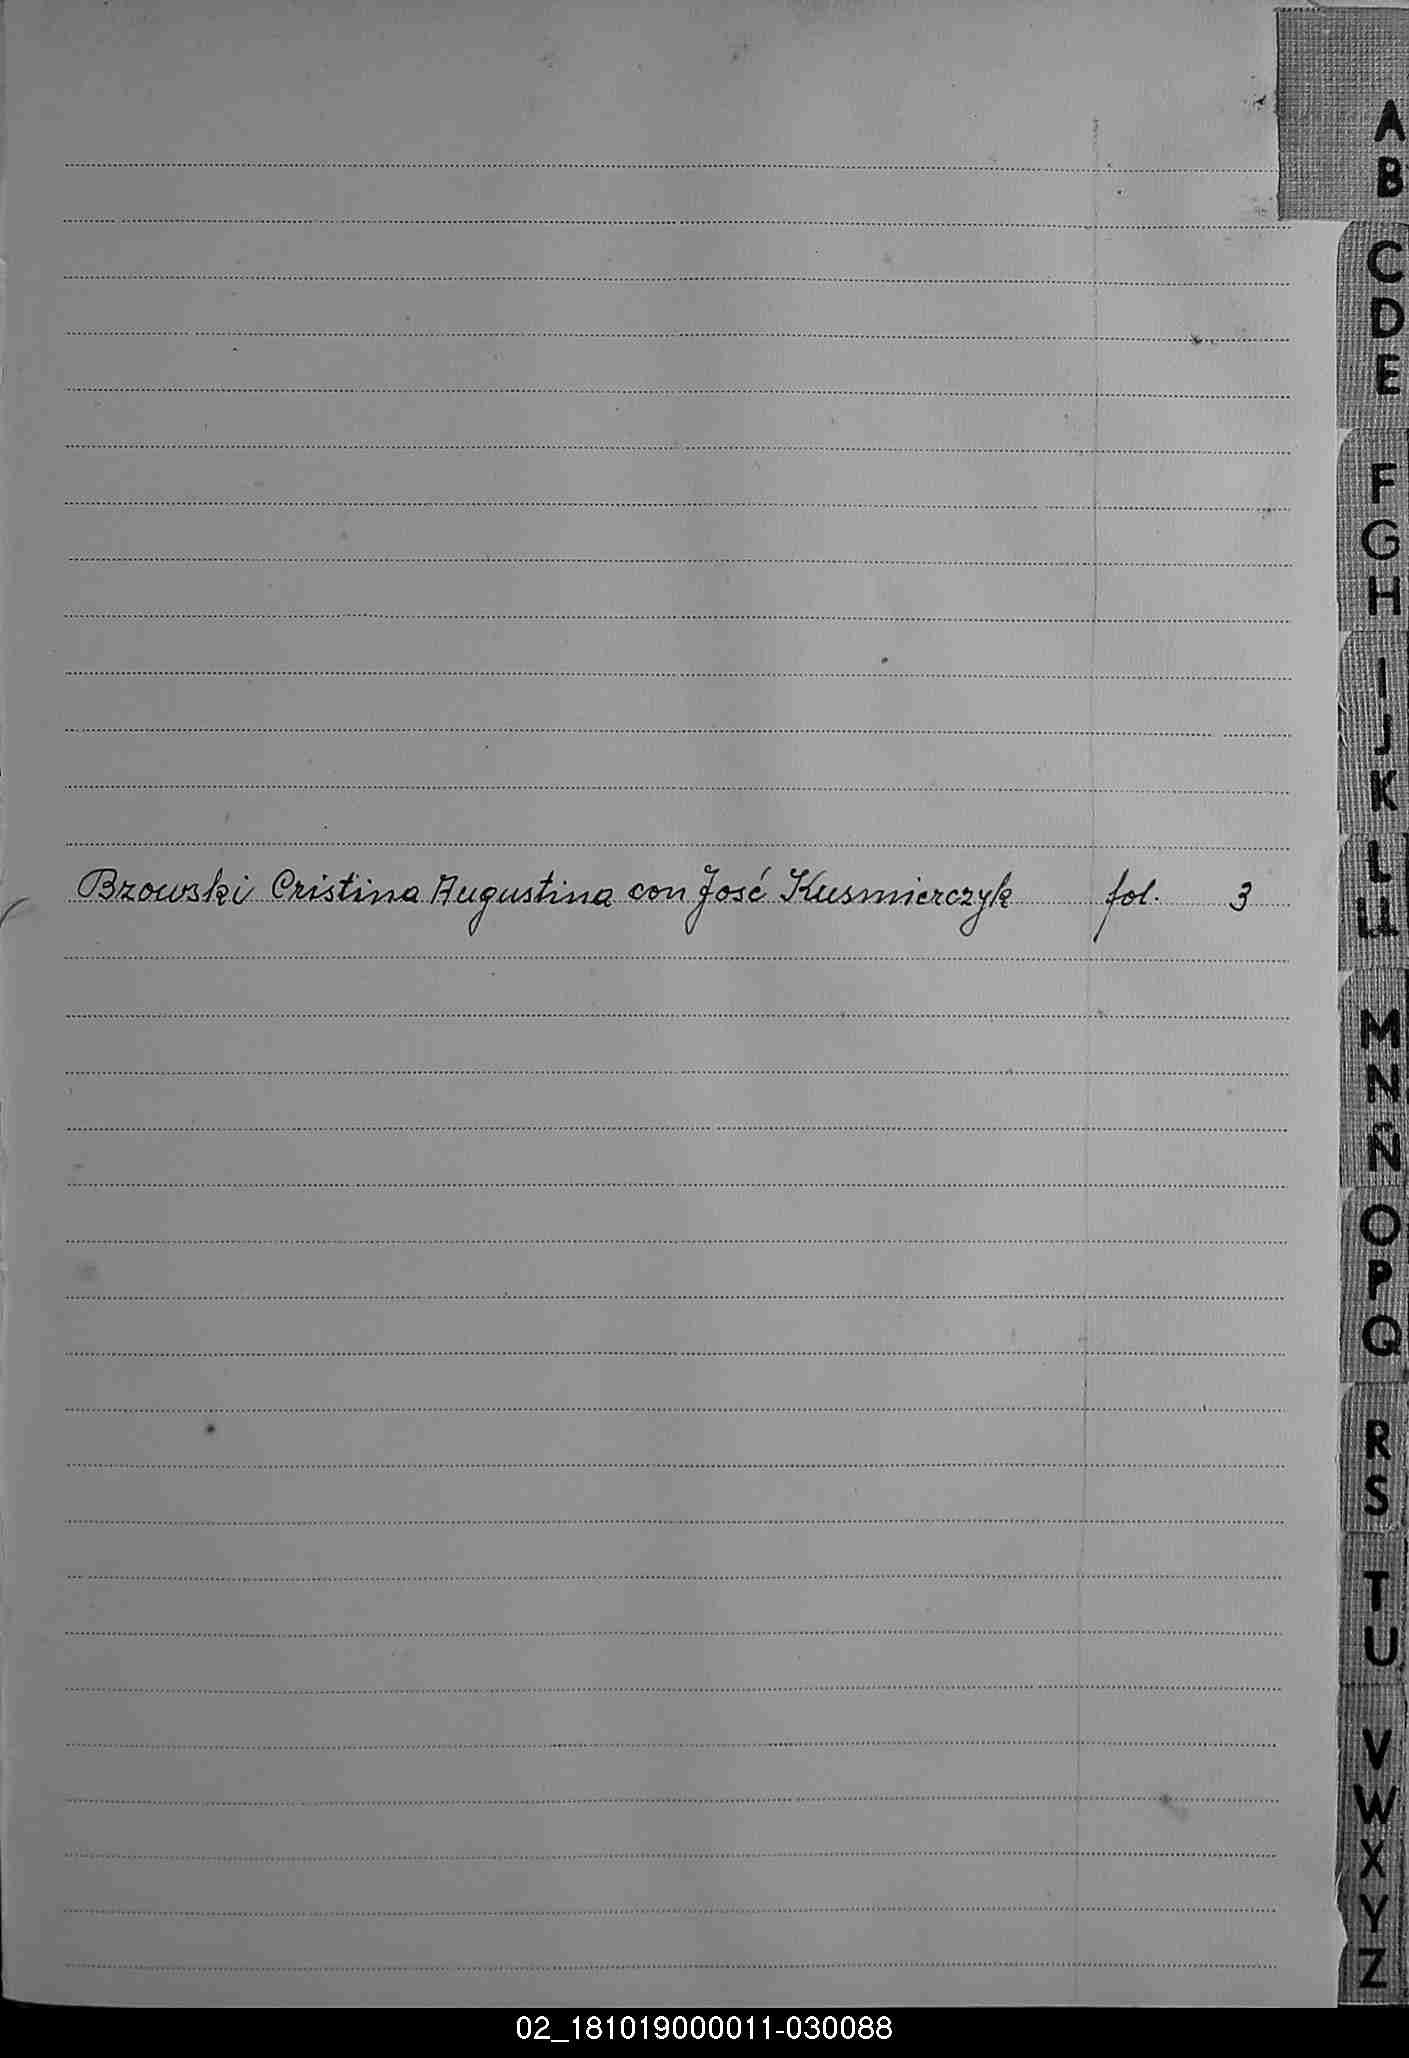 A
B
C
D
E
F
G
H
I
J
K
Brzowski Cristina Augustina con José Kusmierczyk fol. 3
L
LL
M
N
Ñ
O
P
Q
R
S
T
U
V
W
X
Y
Z
02_181019000011-030088